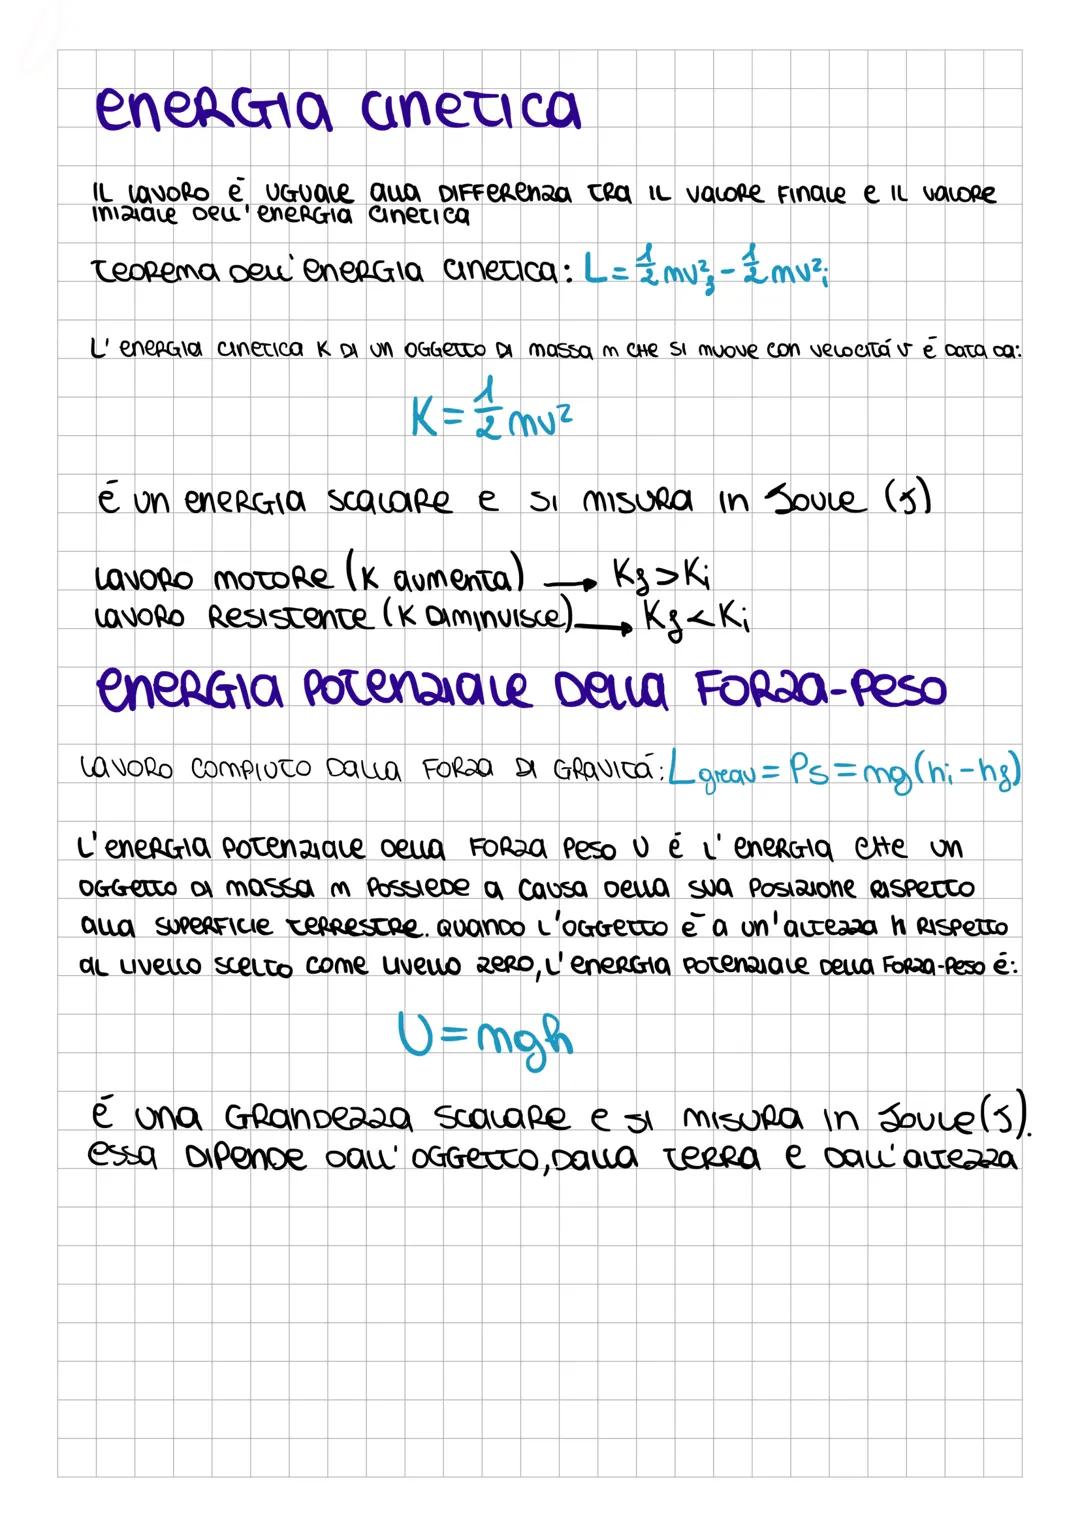 energia cinetica
IL LAVORO é UGUALE alla DIFFERENZA TRA IL VALORE FINALE e IL VALORE
INIZIALE DELL'ENERGIA CINETICA
TEOREMA DELL'ENERGIA CINETICA: L = 1/2 mv²f - 1/2 mv²i
L'ENERGIA CINETICA K DI UN OGGETTO DI MASSA m CHE SI MUOVE CON VELOCITÁ v é DATA DA:
K = 1/2 mv²
é UN ENERGIA SCALARE e SI MISURA IN JOULE (J)
LAVORO MOTORE (K AUMENTA) → Kf > Ki
LAVORO RESISTENTE (K DIMINUISCE) → Kf < Ki
ENERGIA POTENZIALE DELLA FORZA-PESO
LAVORO COMPIUTO DALLA FORZA DI GRAVITÁ: L grav = Ps = mg(hi - hf)
L'ENERGIA POTENZIALE DELLA FORZA PESO U é L'ENERGIA CHE UN
OGGETTO DI MASSA m POSSIEDE A CAUSA DELLA SUA POSIZIONE RISPETTO
ALLA SUPERFICIE TERRESTRE. QUANDO L'OGGETTO é A UN'ALTEZZA h RISPETTO
AL LIVELLO SCELTO COME LIVELLO ZERO, L'ENERGIA POTENZIALE DELLA FORZA-PESO é:
U = mgh
é UNA GRANDEZZA SCALARE e SI MISURA IN JOULE (J).
ESSA DIPENDE DALL'OGGETTO, DALLA TERRA e DALL'ALTEZZA